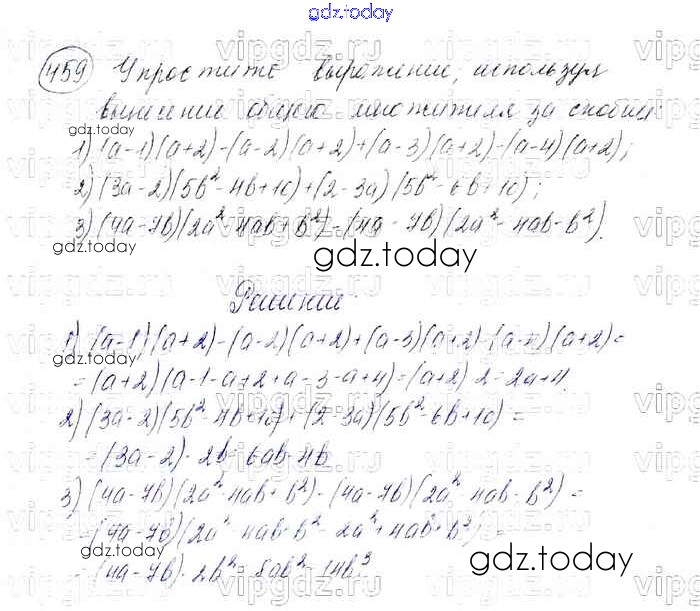 gdz.today
459 Упростите выражение, используя
вынесение общего множителя за скобки:
1) (a-1)(a+2)-(a-2)(a+2)+(a-3)(a+2)-(a-4)(a+2);
2) (3a-2)(5b²-4b+10)+(2-3a)(5b²-6b+10);
3) (4a-7b)(2a²-4ab+b²)-(4a-7b)(2a²-4ab-b²).
gdz.today
gdz.today
Решение:
1) (a-1)(a+2)-(a-2)(a+2)+(a-3)(a+2)-(a-4)(a+2)=
=(a+2)(a-1-a+2+a-3-a+4)=(a+2)·2=2a+4.
2) (3a-2)(5b²-4b+10)+(2-3a)(5b²-6b+10)=
=(3a-2)·2b=6ab-4b
3) (4a-7b)(2a²-4ab+b²)-(4a-7b)(2a²-4ab-b²)=
=(4a-7b)(2a²-4ab+b²-2a²+4ab+b²)=
=(4a-7b)·2b²=8ab²-14b³
gdz.today
gdz.today
vipgdz.ru